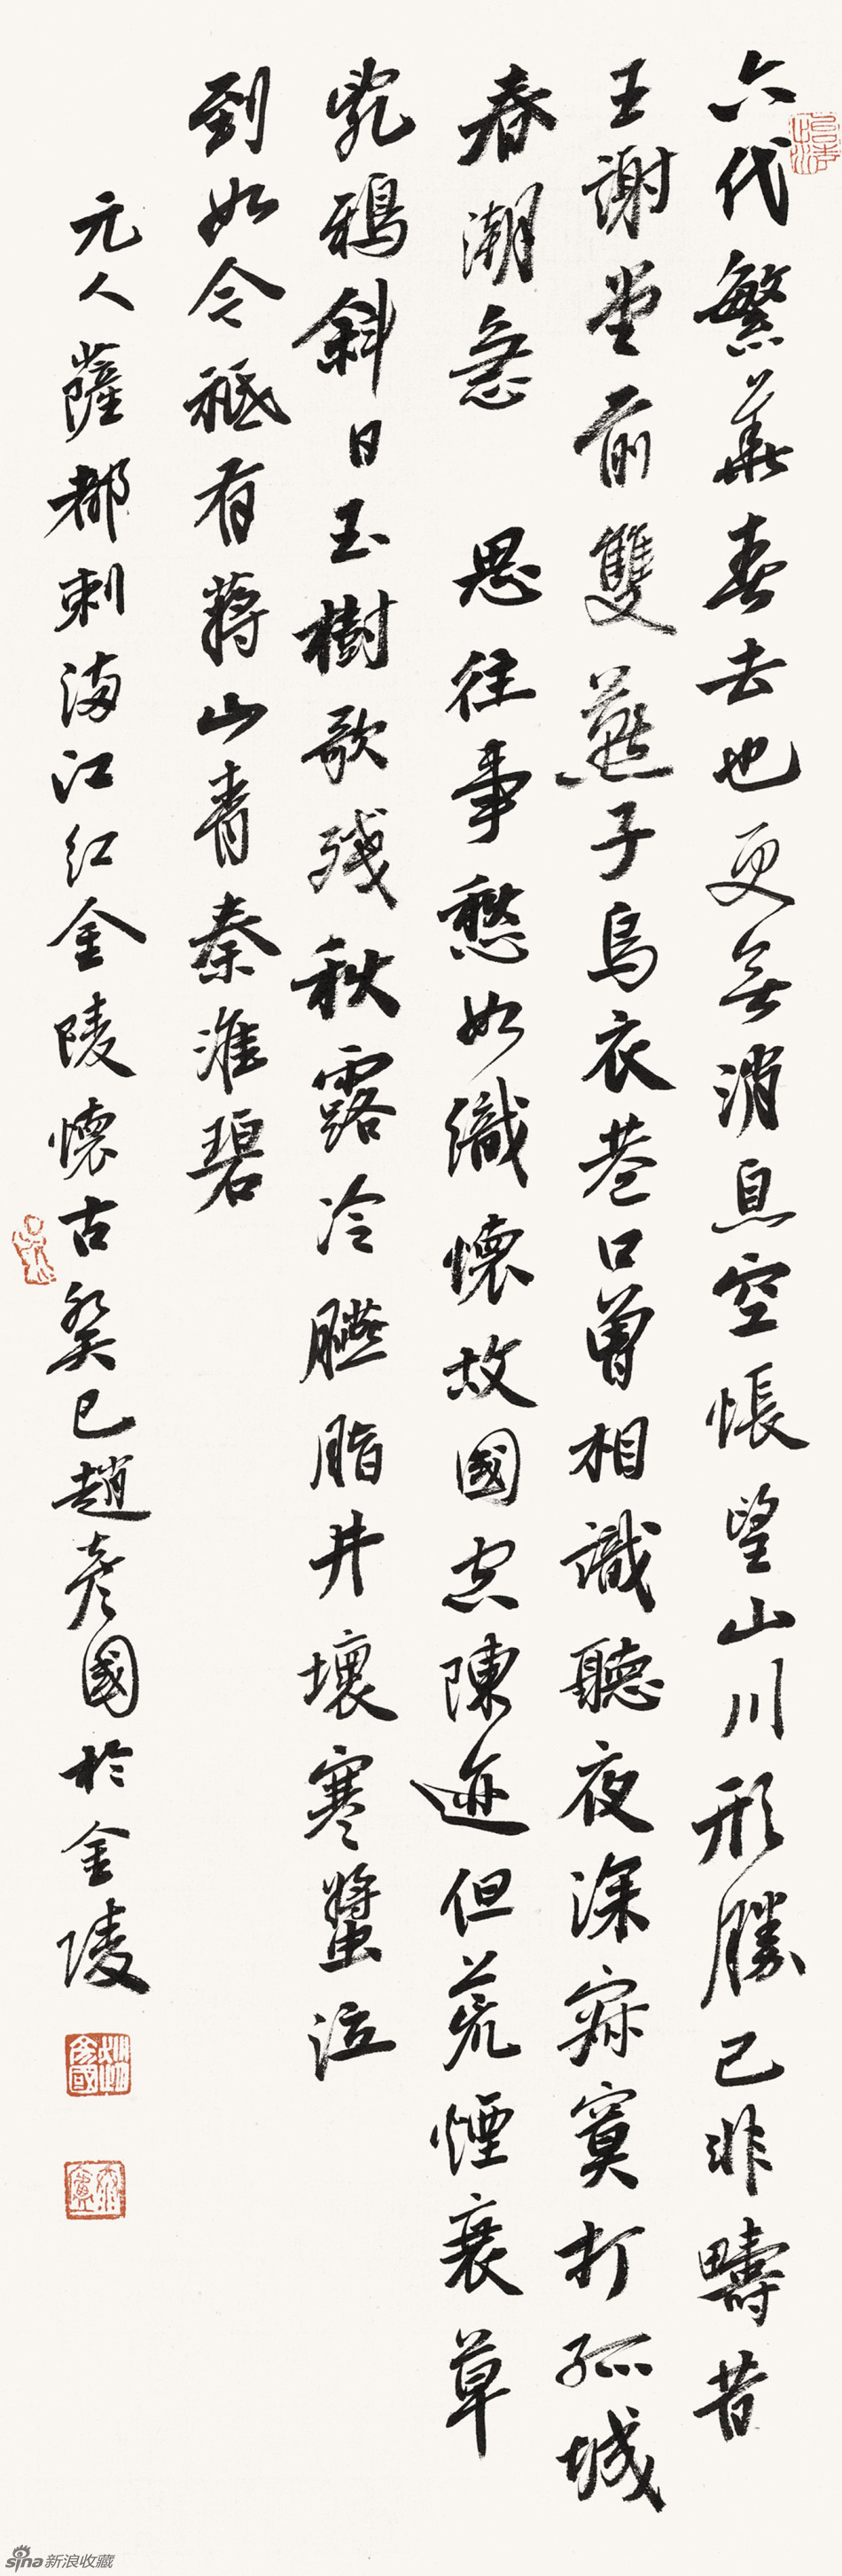 六代繁華春去也更無消息空悵望山川形勝已非疇昔
王謝堂前雙燕子烏衣巷口曾相識聽夜深寂寞打孤城
春潮急 思往事愁如織懷故國空陳迹但荒煙衰草
亂鴉斜日玉樹歌殘秋露冷臙脂井壞寒螿泣
到如今衹有蔣山青秦淮碧
元人薩都剌滿江紅金陵懷古癸巳趙彥國於金陵
sina新浪收藏